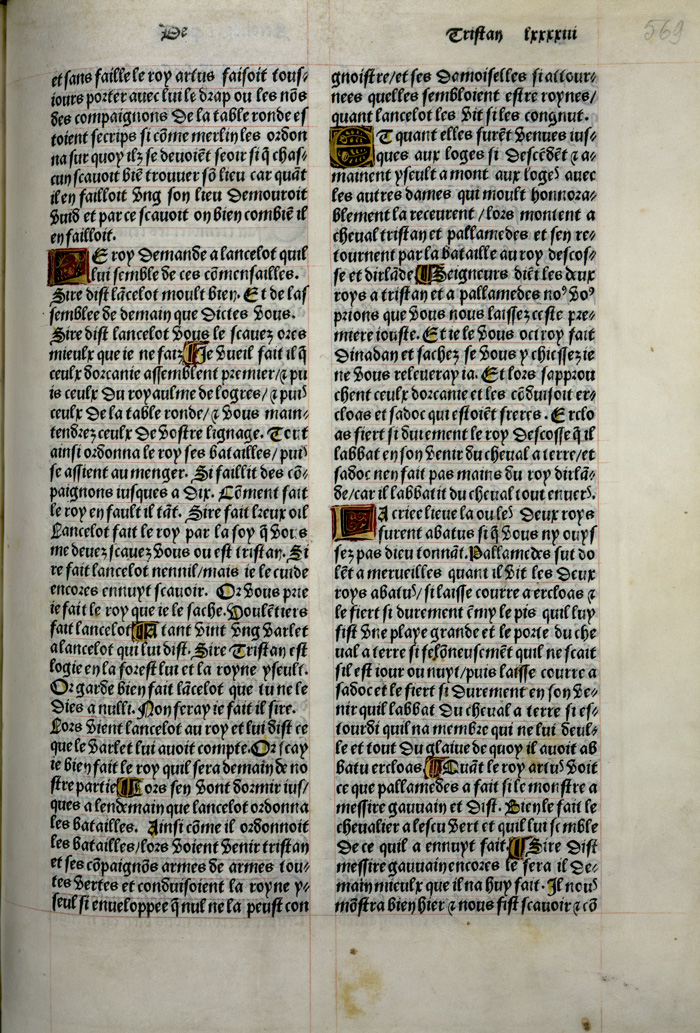 De
Tristan lxxxxiii
569
et sans faille le roy artus faisoit tous⸗
iours porter auec lui le drap ou les nōs
des compaignons De la table ronde es
toient secrips si cōme merlin les ordon
na sur quoy ilz se deuoiēt seoir si q̄ chas⸗
cun scauoit biē trouuer sō lieu car quāt
il en failloit Vng son lieu Demouroit
Vuid et par ce scauoit on bien combiē il
en failloit.
LE roy Demande a lancelot quil
lui semble de ces cōmensailles.
Sire dist lācelot moult bien. Et de las
semblee de demain que Dictes Vous.
Sire dist lancelot Vous le scauez ores
mieulx que ie ne faiz Ie Vueil fait il q̄
ceulx dorcanie assemblent premier/⁊ pu
is ceulx Du royaulme de logres/⁊ puis
ceulx De la table ronde/⁊ Vous main⸗
tendrez ceulx De Vostre lignage. Tout
ainsi ordonna le roy ses batailles/puis
se assient au menger. Si faillit des cō⸗
paignons iusques a Dix. Cōment fait
le roy en fault il tāt. Sire fait lzeux oil
Lancelot fait le roy par la foy q̄ Vous
me deuez scauez Vous ou est tristan. Si
re fait lancelot nennil/mais ie le cuide
encores ennuyt scauoir. Or Vous prie
ie fait le roy que ie le sache. Voulētiers
fait lancelot A tant Vint Vng Varlet
a lancelot qui lui dist. Sire Tristan est
logie en la forest lui et la royne yseult.
Or garde bien fait lācelot que tu ne le
Dies a nulli. Non feray ie fait il sire.
Lors Vient lancelot au roy et lui dist ce
que le Varlet lui auoit compte. Or scay
ie bien fait le roy quil sera demain de no
stre partie Lors sen Vont dormir ius/
ques a lendemain que lancelot ordonna
les batailles. Ainsi cōme il ordonnoit
les batailles/lors Voient Venir tristan
et ses cōpaignōs armes de armes tou⸗
tes Vertes et conduisoient la royne y⸗
seul si enueloppee q̄ nul ne la peust con
gnoistre/et ses Damoiselles si attour⸗
nees quelles sembloient estre roynes/
quant lancelot les Vit si les congnut.
ET quant elles furēt Venues ius⸗
ques aux loges si Descēdēt ⁊ a⸗
mainent yseult a mont aux loges auec
les autres dames qui moult honnora⸗
blement la receurent/lors montent a
cheual tristan et pallamedes et sen re⸗
tournent par la bataille au roy descos⸗
se et dirlāde Seigneurs diēt les deux
roys a tristan et a pallamedes noꝰ Voꝰ
prions que Vous nous laissez ceste pre⸗
miere iouste. Et ie le Vous octroy fait
Dinadan et sachez se Vous y chiessez ie
ne Vous releueray ia. Et lors sapprou
chent ceulx dorcanie et les cōduisoit er⸗
cloas et sadoc qui estoiēt freres. Erclo
as fiert si durement le roy Descosse q̄ il
labbat en son Venir du cheual a terre/et
sadoc nen fait pas mains du roy dirlā⸗
de/car il labbatit du cheual tout enuers.
LA criee lieue la ou les Deux roys
furent abatus si q̄ Vous ny ouys
sez pas dieu tonnāt. Pallamedes fut do
lēt a merueilles quant il Vit les Deux
roys abatus/si laisse courre a ercloas ⁊
le fiert si durement ēmy le pis quil luy
fist Vne playe grande et le porte du che
ual a terre si felōneusemēt quil ne scait
sil est iour ou nuyt/puis laisse courre a
sadoc et le fiert si Durement en son Ve⸗
nir quil labbat Du cheual a terre si es⸗
tourdi quil na membre qui ne lui deul⸗
le et tout Du glaiue de quoy il auoit ab
batu ercloas. Quāt le roy artus Voit
ce que pallamedes a fait si le monstre a
messire gauuain et Dist. Bien le fait le
cheualier a lescu Vert et quil lui semble
De ce quil a ennuyt fait. Sire Dist
messire gauuain encores le fera il De⸗
main mieulx que il na huy fait. Il nous
mōstra bien hier ⁊ nous fist scauoir ⁊ cō